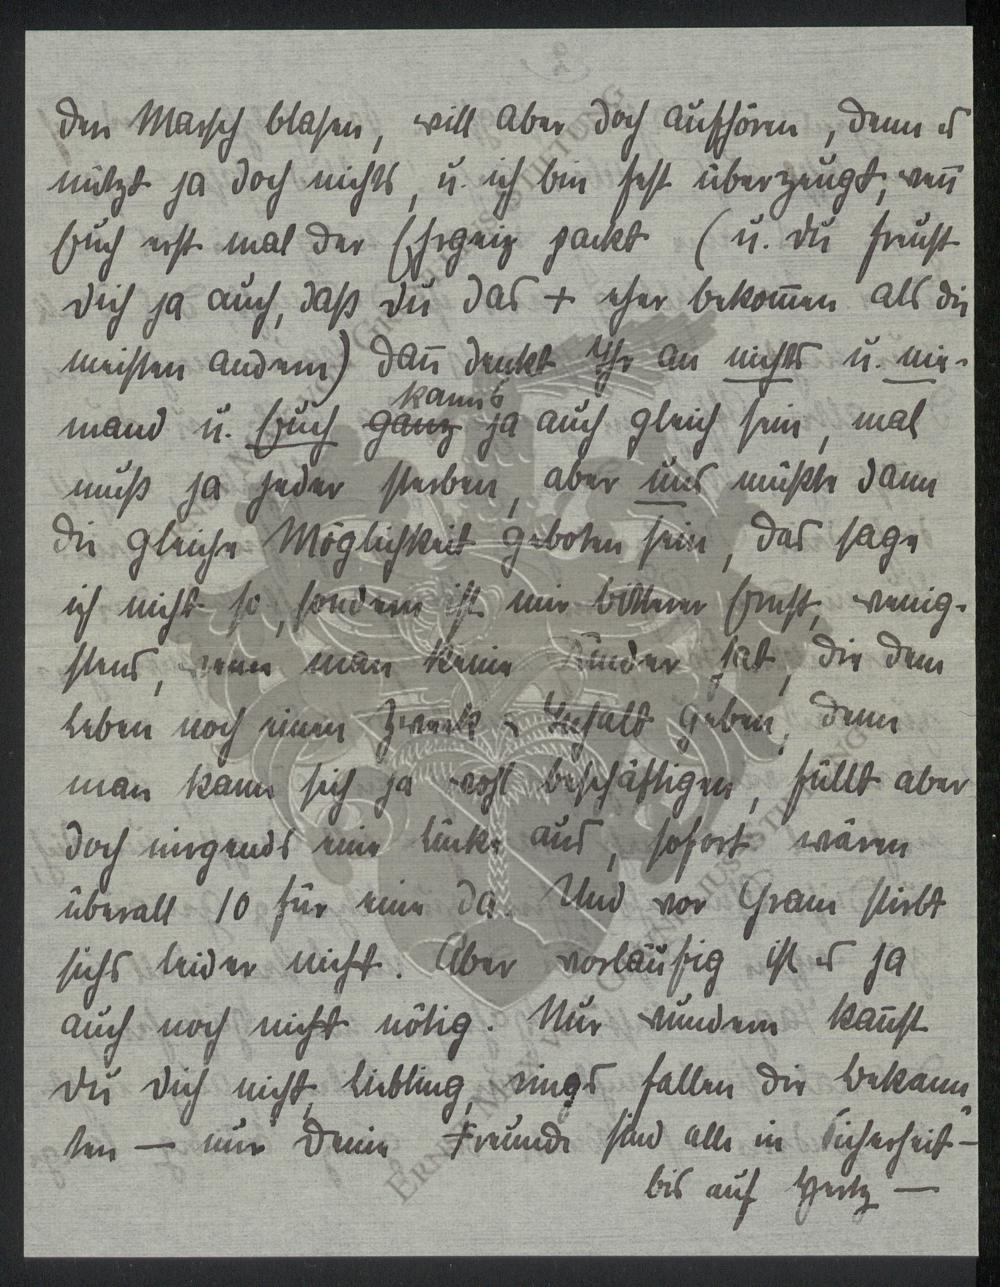 den Marsch blasen, will aber doch aufhören, denn es
nützt ja doch nichts, u. ich bin fest überzeugt, weñ
Euch erst mal der Ehrgeiz packt (u. Du freust
Dich ja auch, daß Du das + eher bekom̃en als die
meisten andern) dañ denkt Ihr an nichts u. nie-
mand u. Euch ganz kanns ja auch gleich sein, mal
muß ja jeder sterben, aber uns müßte dann
die gleiche Möglichkeit geboten sein, das sage
ich nicht so, sondern ist mir bitterer Ernst, wenig-
stens, wenn man keine Kinder hat, die dem
Leben noch einen Zweck u. Inhalt geben, denn
man kann sich ja wohl beschäftigen, füllt aber
doch nirgends eine Lücke aus, sofort wären
überall 10 für eine da. Und vor Gram stirbt
sichs leider nicht. Aber vorläufig ist es ja
auch noch nicht nötig. Nur wundern kañst
Du Dich nicht, Liebling, rings fallen die Bekann-
ten — nur Deine Freunde sind alle in Sicherheit —
bis auf Hertz —
ERNST MORWITZ
GIORNIUS STIFTUNG